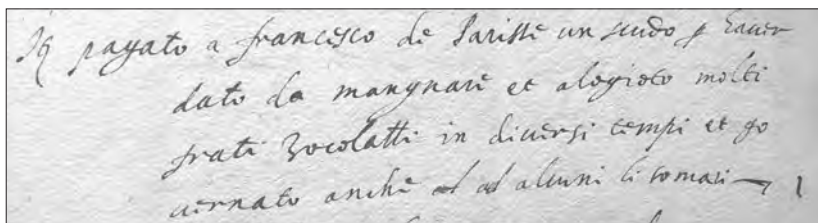 It pagato a francesco de Parisse un scudo p haver
dato da mangnare et alogiato molti
frati Zocolatti in diversi tempi et go
vernato anche ad alcuni li somari — 1